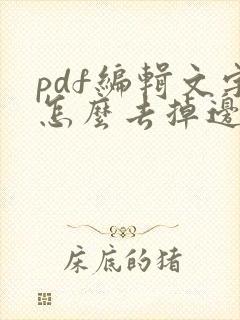 pdf編輯文字
怎麼去掉邊
床底的猪